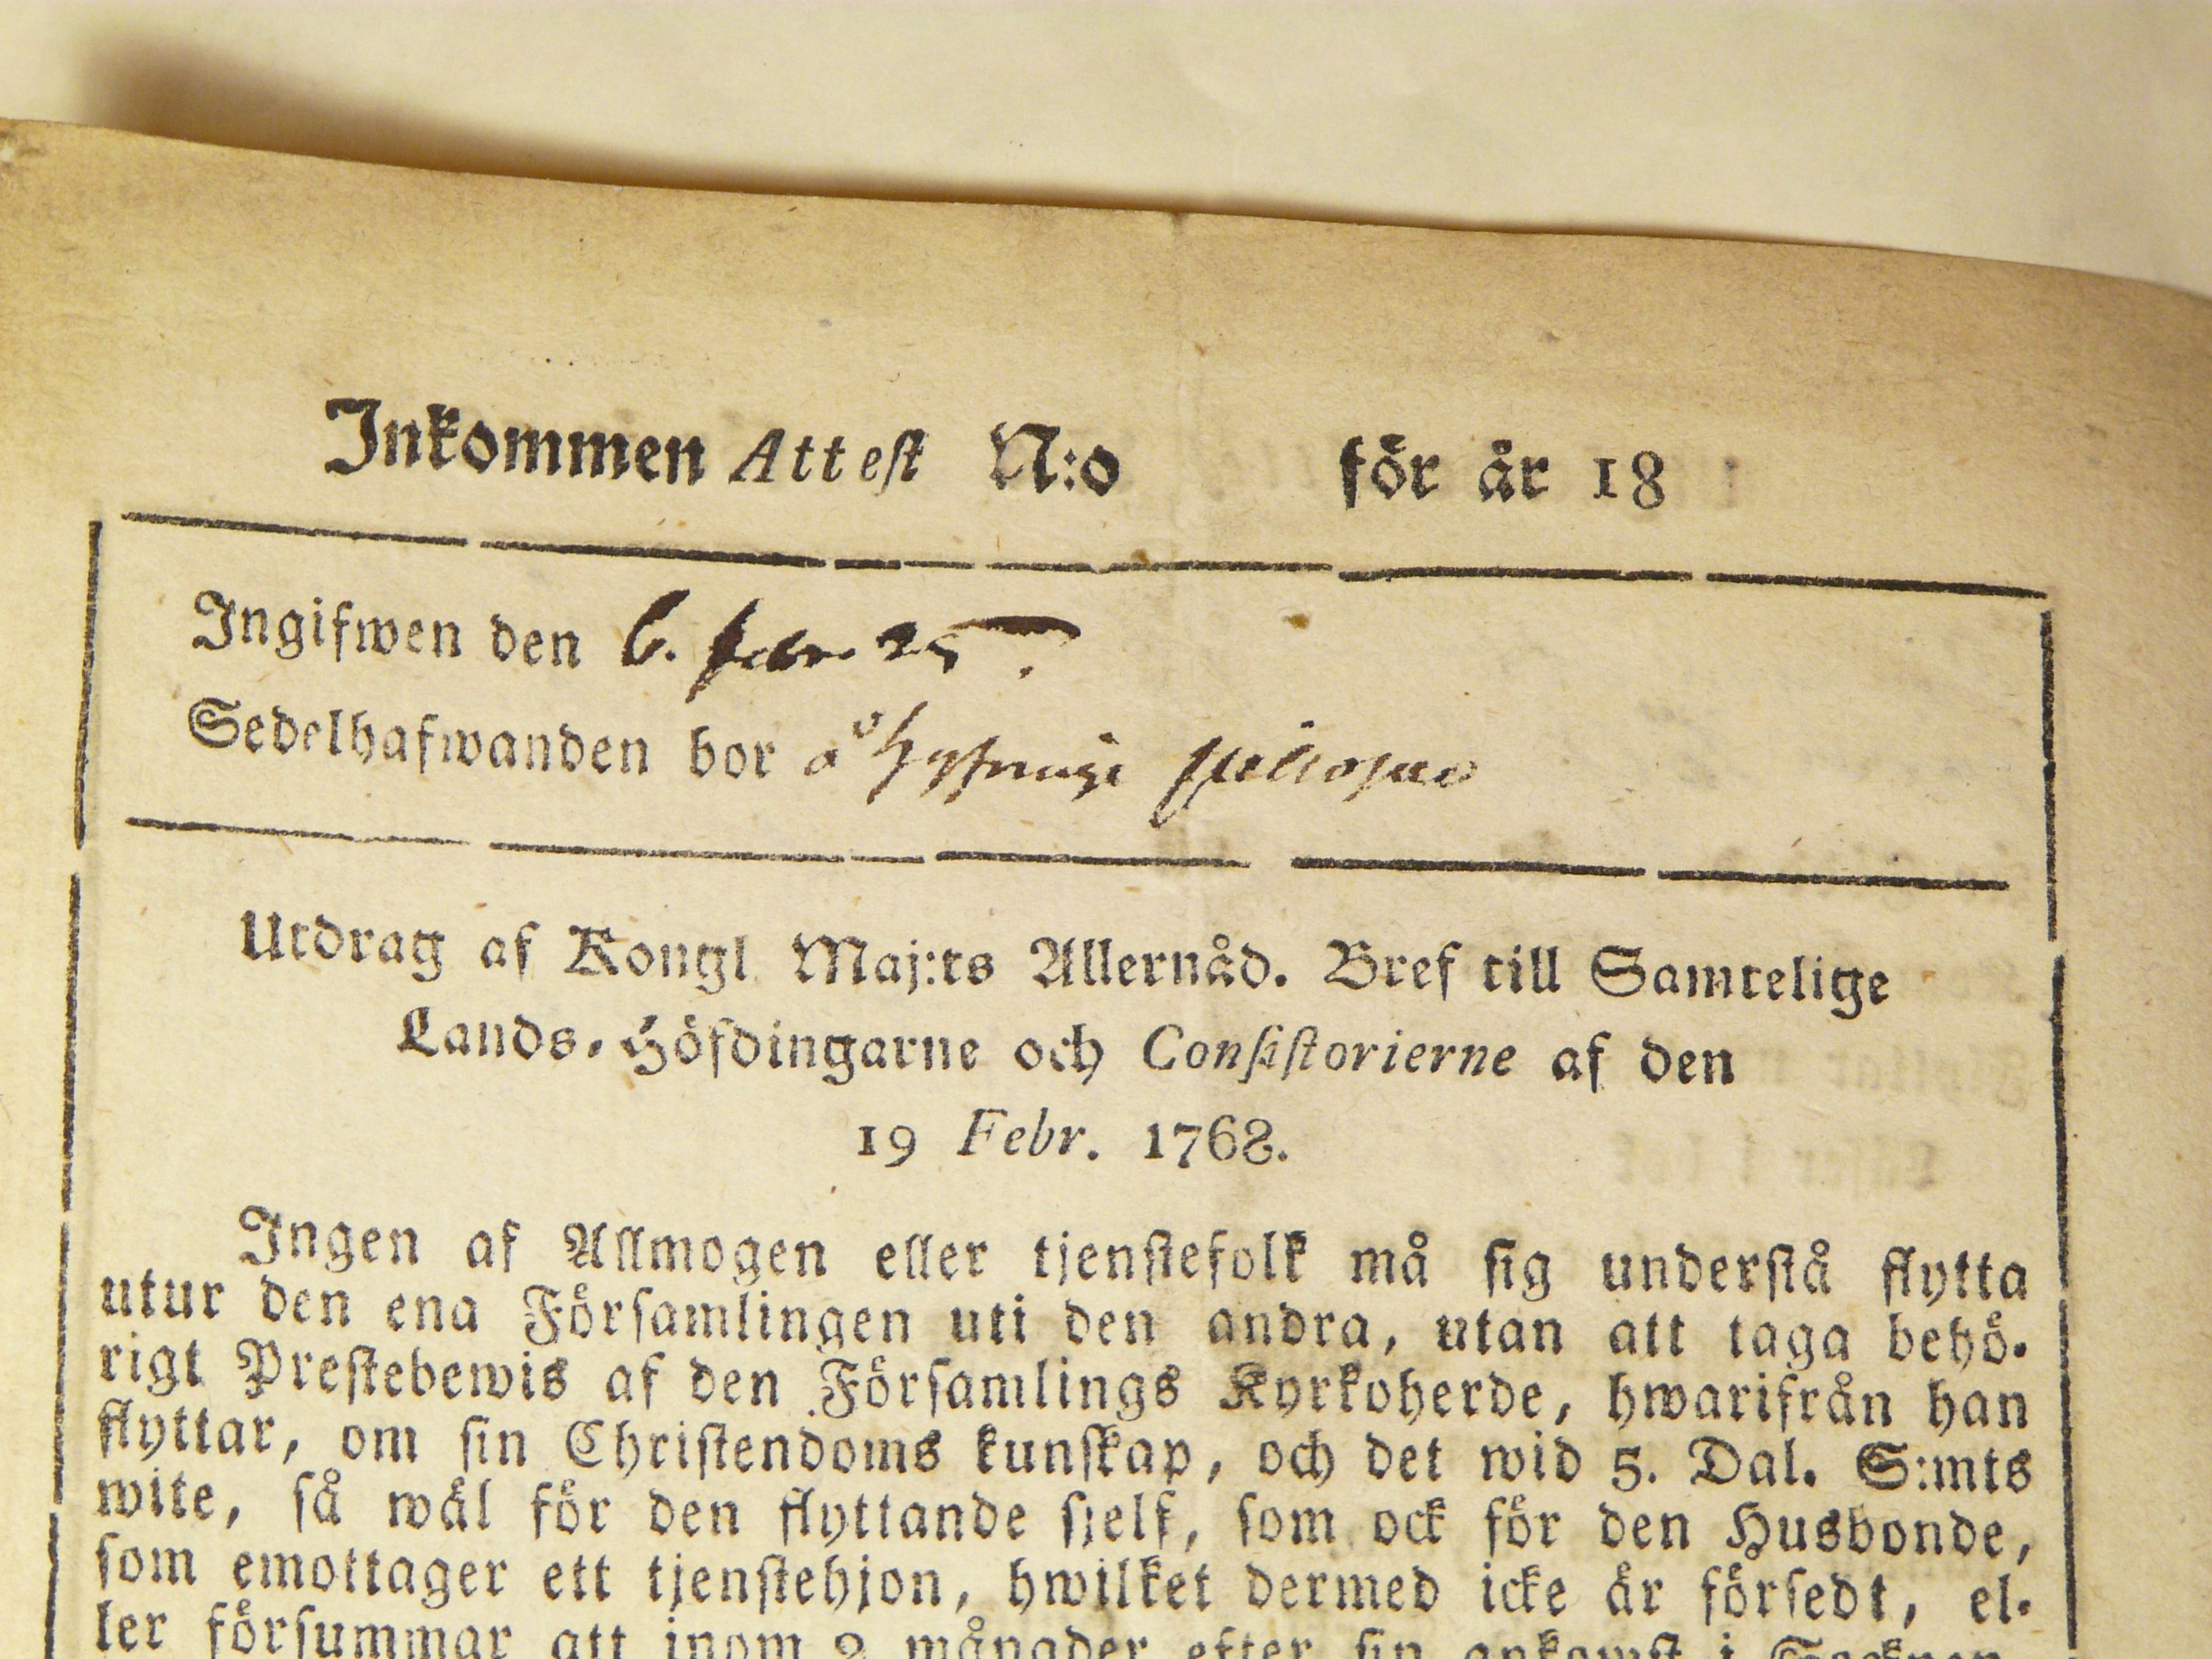 Inkommen Attest N:o för år 18
Ingifwen den 6. febr. 25
Sedelhafwanden bor å
Utdrag af Kongl Maj:ts Allernåd. Bref till Samtelige
Lands-Höfdingarne och Consistorierne af den
19 Febr. 1768.
Ingen af Allmogen eller tjenstefolk må sig understå flytta
utur den ena Församlingen uti den andra, utan att taga behö-
rigt Prestebewis af den Församlings Kyrkoherde, hwarifrån han
flyttar, om sin Christendoms kunskap, och det wid 5. Dal. S:mts
wite, så wäl för den flyttande sjelf, som ock för den Husbonde,
som emottager ett tjenstehjon, hwilket dermed icke är försedt, el-
ler försummar att inom 2 månader efter sin ankomst i Socknen